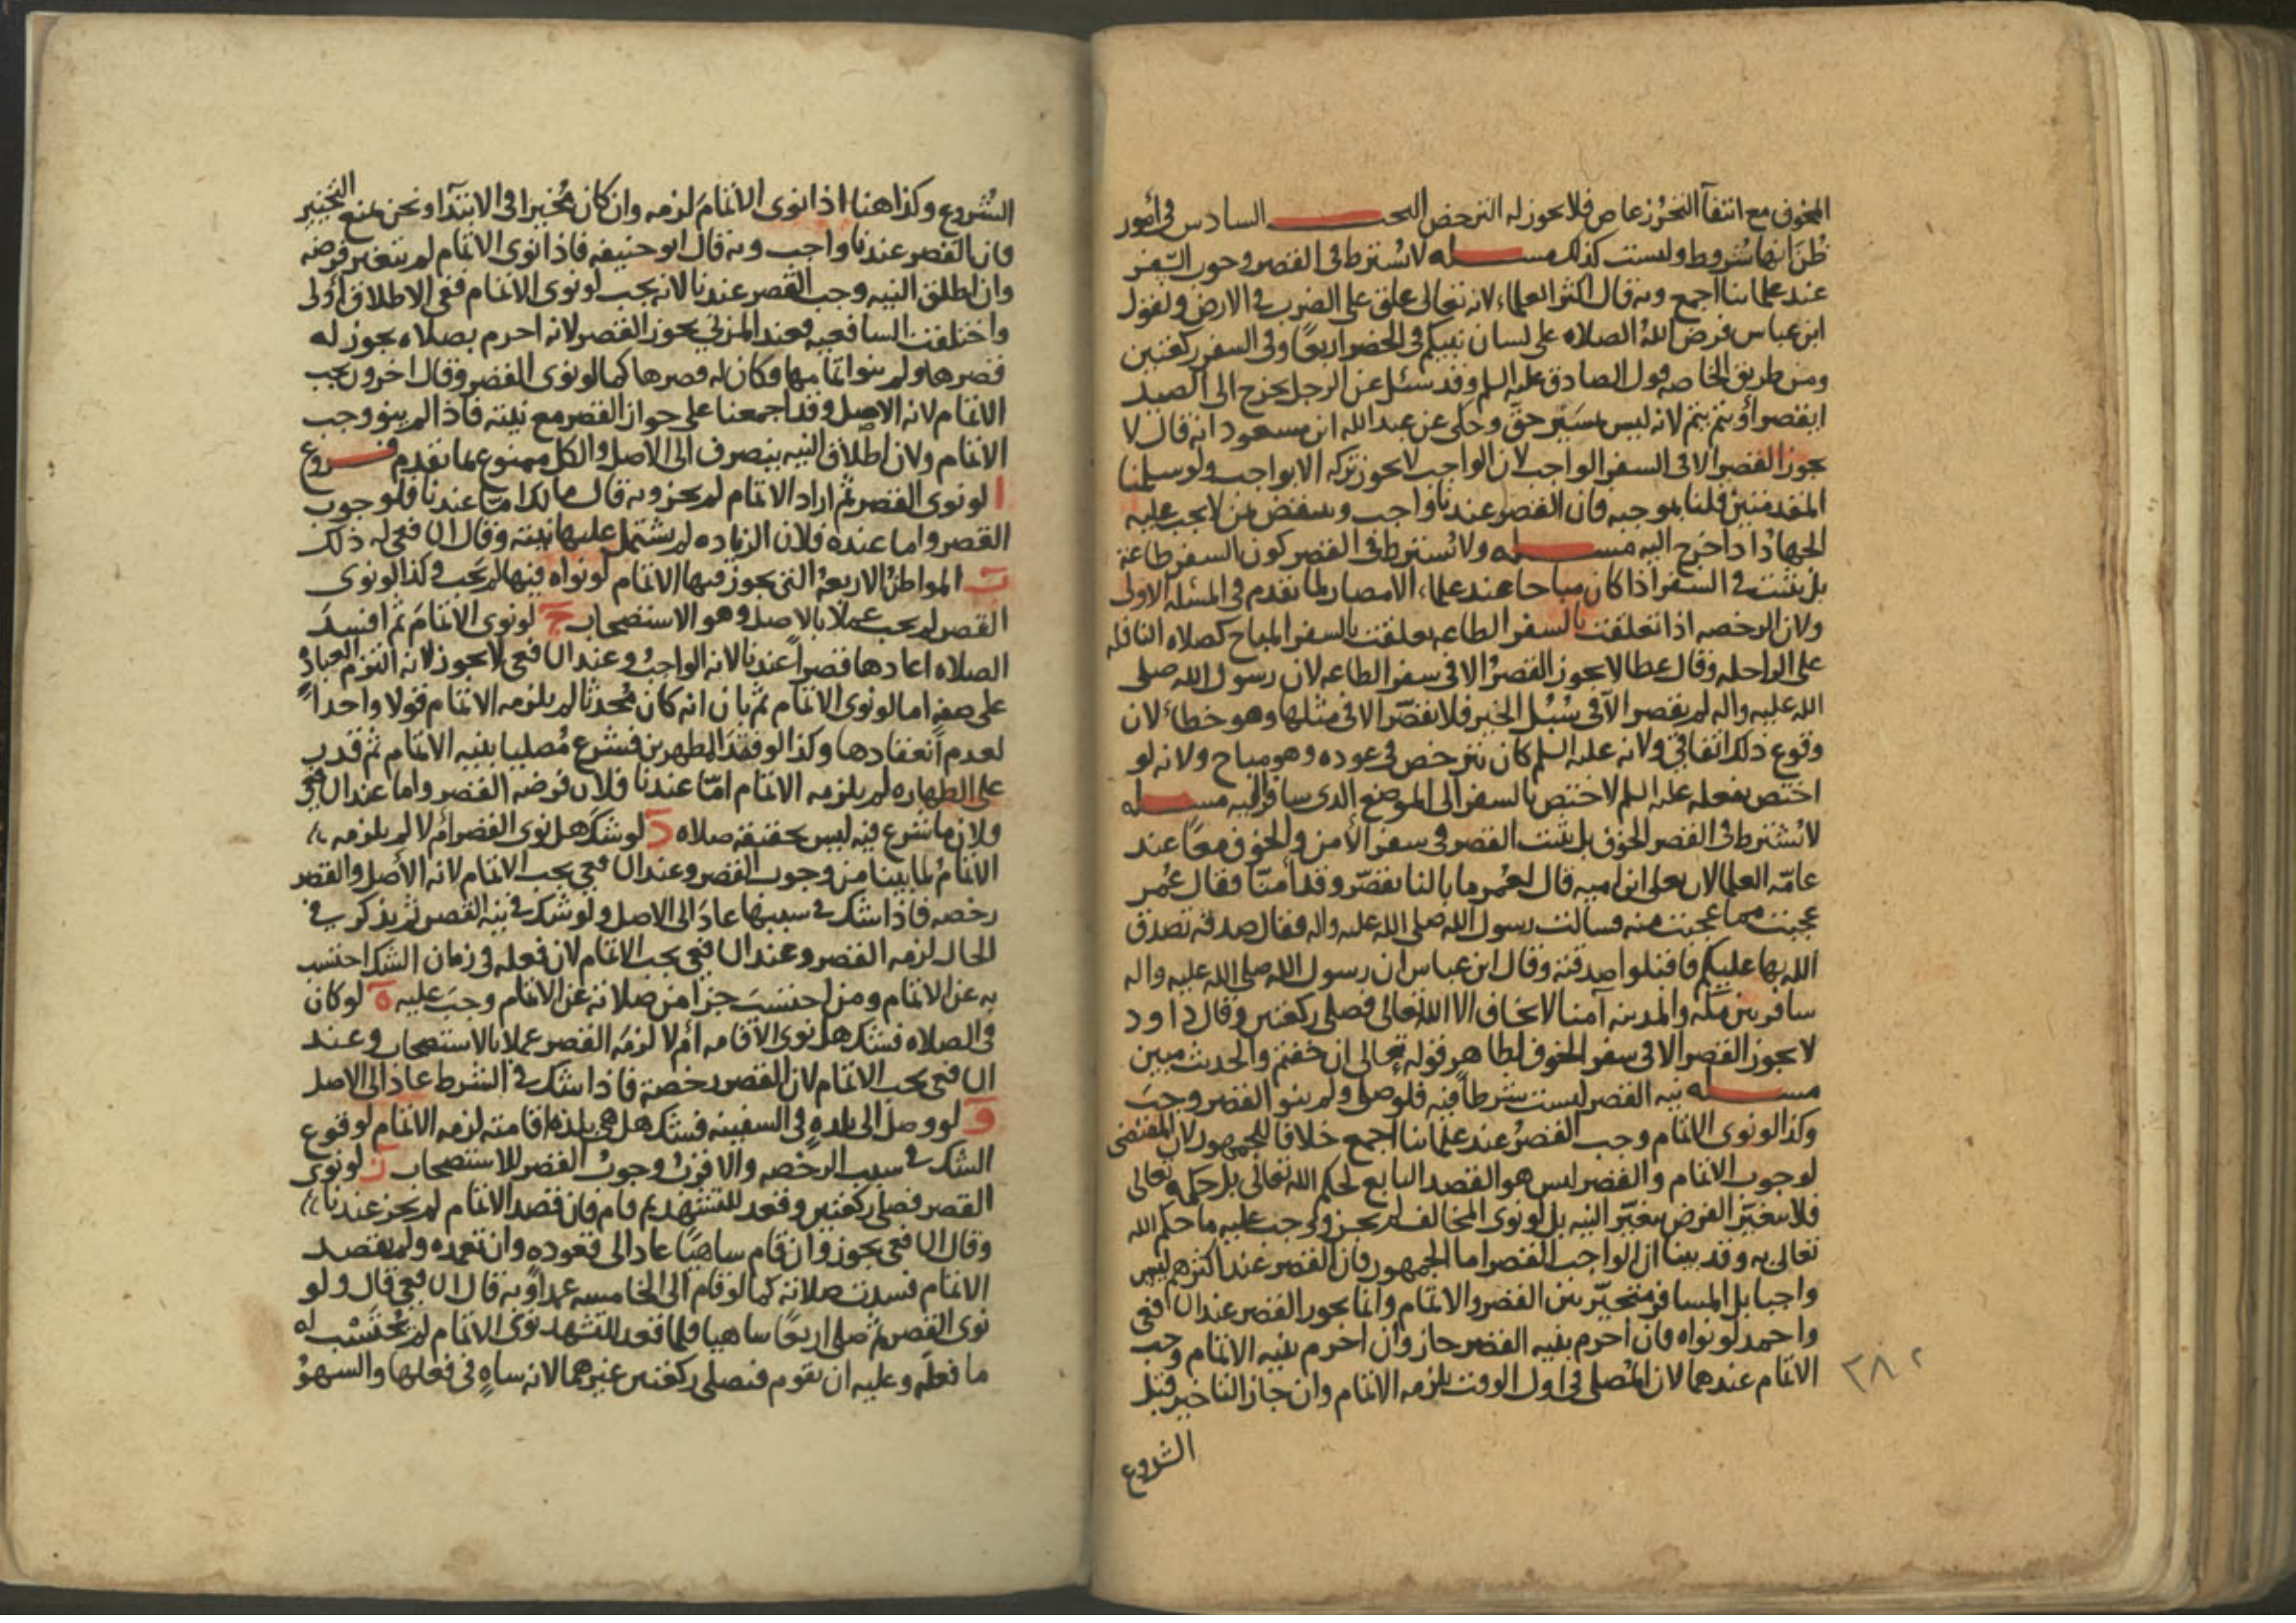 المخوف مع انتفآ التحرز عاص فلا يجوز له الترخص البحث السادس في أمور
ظن انها شروط وليست كذلك مسله لا يشترط في القصر وجوب السفر
عند علمائنا اجمع وبه قال اكثر العلماء لانه تعالى علق على الضرب في الارض ولقول
ابن عباس فرض الله الصلاه على لسان نبيكم في الحضر اربعا وفي السفر ركعتين
ومن طريق الخاصه قول الصادق عليه السلم وقد سئل عن الرجل يخرج الى الصيد
ايقصر أو يتم يتم لانه ليس بمسير حق وحكى عن عبد الله ابن مسعود انه قال لا
يجوز القصر الا في السفر الواجب لان الواجب لا يجوز تركه الا لواجب ولو سلمنا
المقدمتين قلنا بموجبه فان القصر عندنا واجب وينتقض بمن لا يجب عليه
الجهاد اذا خرج اليه مسله ولا يشترط في القصر كون السفر طاعة
بل يثبت في السفر اذا كان مباحا عند علماء الامصار لما تقدم في المسئله الاولى
ولان الرخصه اذا تعلقت بالسفر الطاعه تعلقت بالسفر المباح كصلاه النافله
على الراحله وقال عطا لا يجوز القصر الا في سفر الطاعه لان رسول الله صلى
الله عليه واله لم يقصر الا في سبل الخير فلا يقصر الا في مثلها وهو خطأ لان
وقوع ذلك اتفاقي ولانه عليه السلم كان يترخص في عوده وهو مباح ولانه لو
اختص بفعله عليه السلم لاختص بالسفر الى الموضع الذي سافر اليه مسله
لا يشترط في القصر الخوف بل يثبت القصر في سفر الأمن والخوف معا عند
عامه العلما لان يعلى ابن اميه قال لعمر ما بالنا نقصر وقد أمنا فقال عمر
عجبت مما عجبت منه فسالت رسول الله صلى الله عليه واله فقال صدقه تصدق
الله بها عليكم فاقبلوا صدقته وقال ابن عباس ان رسول الله صلى الله عليه واله
سافر بين مكه والمدينه آمنا لا يخاف الا الله تعالى فصلى ركعتين وقال داود
لا يجوز القصر الا في سفر الخوف لظاهر قوله تعالى ان خفتم والحديث مبين
مسله نيه القصر ليست شرطا فيه فلو صلى ولم ينو القصر وجب
وكذا لو نوى الاتمام وجب القصر عند علمائنا اجمع خلافا للجمهور لان المقتضى
لوجوب الاتمام والقصر ليس هو القصد التابع لحكم الله تعالى بل حكمه تعالى
فلا يتغير الفرض بتغير النيه بل لو نوى المخالف لم يجز ووجب عليه ما حكم الله
تعالى به وقد بينا ان الواجب القصر اما الجمهور فان القصر عند اكثرهم ليس
واجبا بل المسافر متخير بين القصر والاتمام وانما يجوز القصر عند الشافعي
واحمد لو نواه فان احرم بنيه القصر جاز وان احرم بنيه الاتمام وجب
الاتمام عندهما لان المصلي في اول الوقت يلزمه الاتمام وان جاز التاخير قبل
الشروع
٣٨٢
الشروع وكذا هنا اذا نوى الاتمام لزمه وان كان مخيرا في الابتدآ ونحن نمنع التخيير
فان القصر عندنا واجب وبه قال ابو حنيفه فاذا نوى الاتمام لم يتغير فرضه
وان اطلق النيه وجب القصر عندنا لانه يجب لو نوى الاتمام ففي الاطلاق أولى
واختلفت الشافعيه فعند المزني يجوز القصر لانه احرم بصلاه يجوز له
قصرها ولم ينو اتمامها فكان له قصرها كما لو نوى القصر وقال اخرون يجب
الاتمام لانه الاصل وقد اجمعنا على جواز القصر مع نيته فاذا لم ينو وجب
الاتمام ولان اطلاق النيه ينصرف الى الاصل والكل ممنوع عما تقدم فروع
ا لو نوى القصر ثم اراد الاتمام لم يجز وبه قال مالك اما عندنا فلوجوب
القصر واما عنده فلان الزياده لم يشتمل عليها نيته وقال الشافعي له ذلك
ب المواطن الاربعه التي يجوز فيها الاتمام لو نواه فيها لم يجب وكذا لو نوى
القصر لم يجب عملا بالاصل وهو الاستصحاب ج لو نوى الاتمام ثم افسد
الصلاه اعادها قصرا عندنا لانه الواجب وعند الشافعي لا يجوز لانه التزم العبادة
على صفه اما لو نوى الاتمام ثم بان انه كان محدثا لم يلزمه الاتمام قولا واحدا
لعدم انعقادها وكذا لو فقد المطهرين فشرع مصليا بنيه الاتمام ثم قدر
على الطهاره لم يلزمه الاتمام امّا عندنا فلان فرضه القصر واما عند الشافعي
فلان ما شرع فيه ليس بحقيقه صلاه د لو شك هل نوى القصر أم لا لم يلزمه
الاتمام لما بينا من وجوب القصر وعند الشافعي يجب الاتمام لانه الأصل والقصر
رخصه فاذا شك في سببها عاد الى الاصل ولو شك في نيه القصر ثم ذكر في
الحال لزمه القصر وعند الشافعي يجب الاتمام لان فعله في زمان الشك احتسب
به عن الاتمام ومن احتسب جزا من صلاته عن الاتمام وجب عليه ه لو كان
في الصلاه فشك هل نوى الاقامه أم لا لزمه القصر عملا بالاستصحاب وعند
الشافعي يجب الاتمام لان القصر رخصة فاذا شك في الشرط عاد الى الاصل
و لو وصل الى بلده في السفينه فشك هل هي بلده اقامته لزمه الاتمام لوقوع
الشك في سبب الرخصه والاقرب وجوب القصر للاستصحاب ز لو نوى
القصر فصلى ركعتين وقعد للتشهد ثم قام فان قصد الاتمام لم يجز عندنا
وقال الشافعي يجوز وان قام ساهيا عاد الى قعوده وان تعمده ولم يقصد
الاتمام فسدت صلاته كما لو قام الى الخامسه عمدا وبه قال الشافعي قال ولو
نوى القصر ثم صلى اربعا ساهيا فلما قعد للتشهد نوى الاتمام لم يحتسب له
ما فعله وعليه ان يقوم فيصلي ركعتين غيرهما لانه ساه في فعلها والسهو